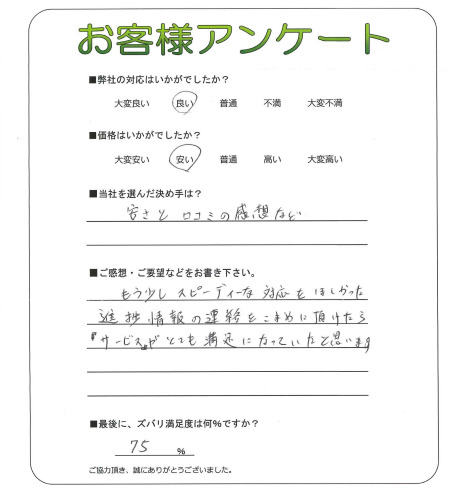 お客様アンケート
■弊社の対応はいかがでしたか？
大変良い 良い 普通 不満 大変不満
■価格はいかがでしたか？
大変安い 安い 普通 高い 大変高い
■当社を選んだ決め手は？
安さと 口コミの感想など
■ご感想・ご要望などをお書き下さい。
もう少し スピーディーな 対応を ほしかった
進捗情報の連絡をこまめに頂けたら
『サービス』がとても満足になっていたと思います
■最後に、ズバリ満足度は何％ですか？
75 ％
ご協力頂き、誠にありがとうございました。